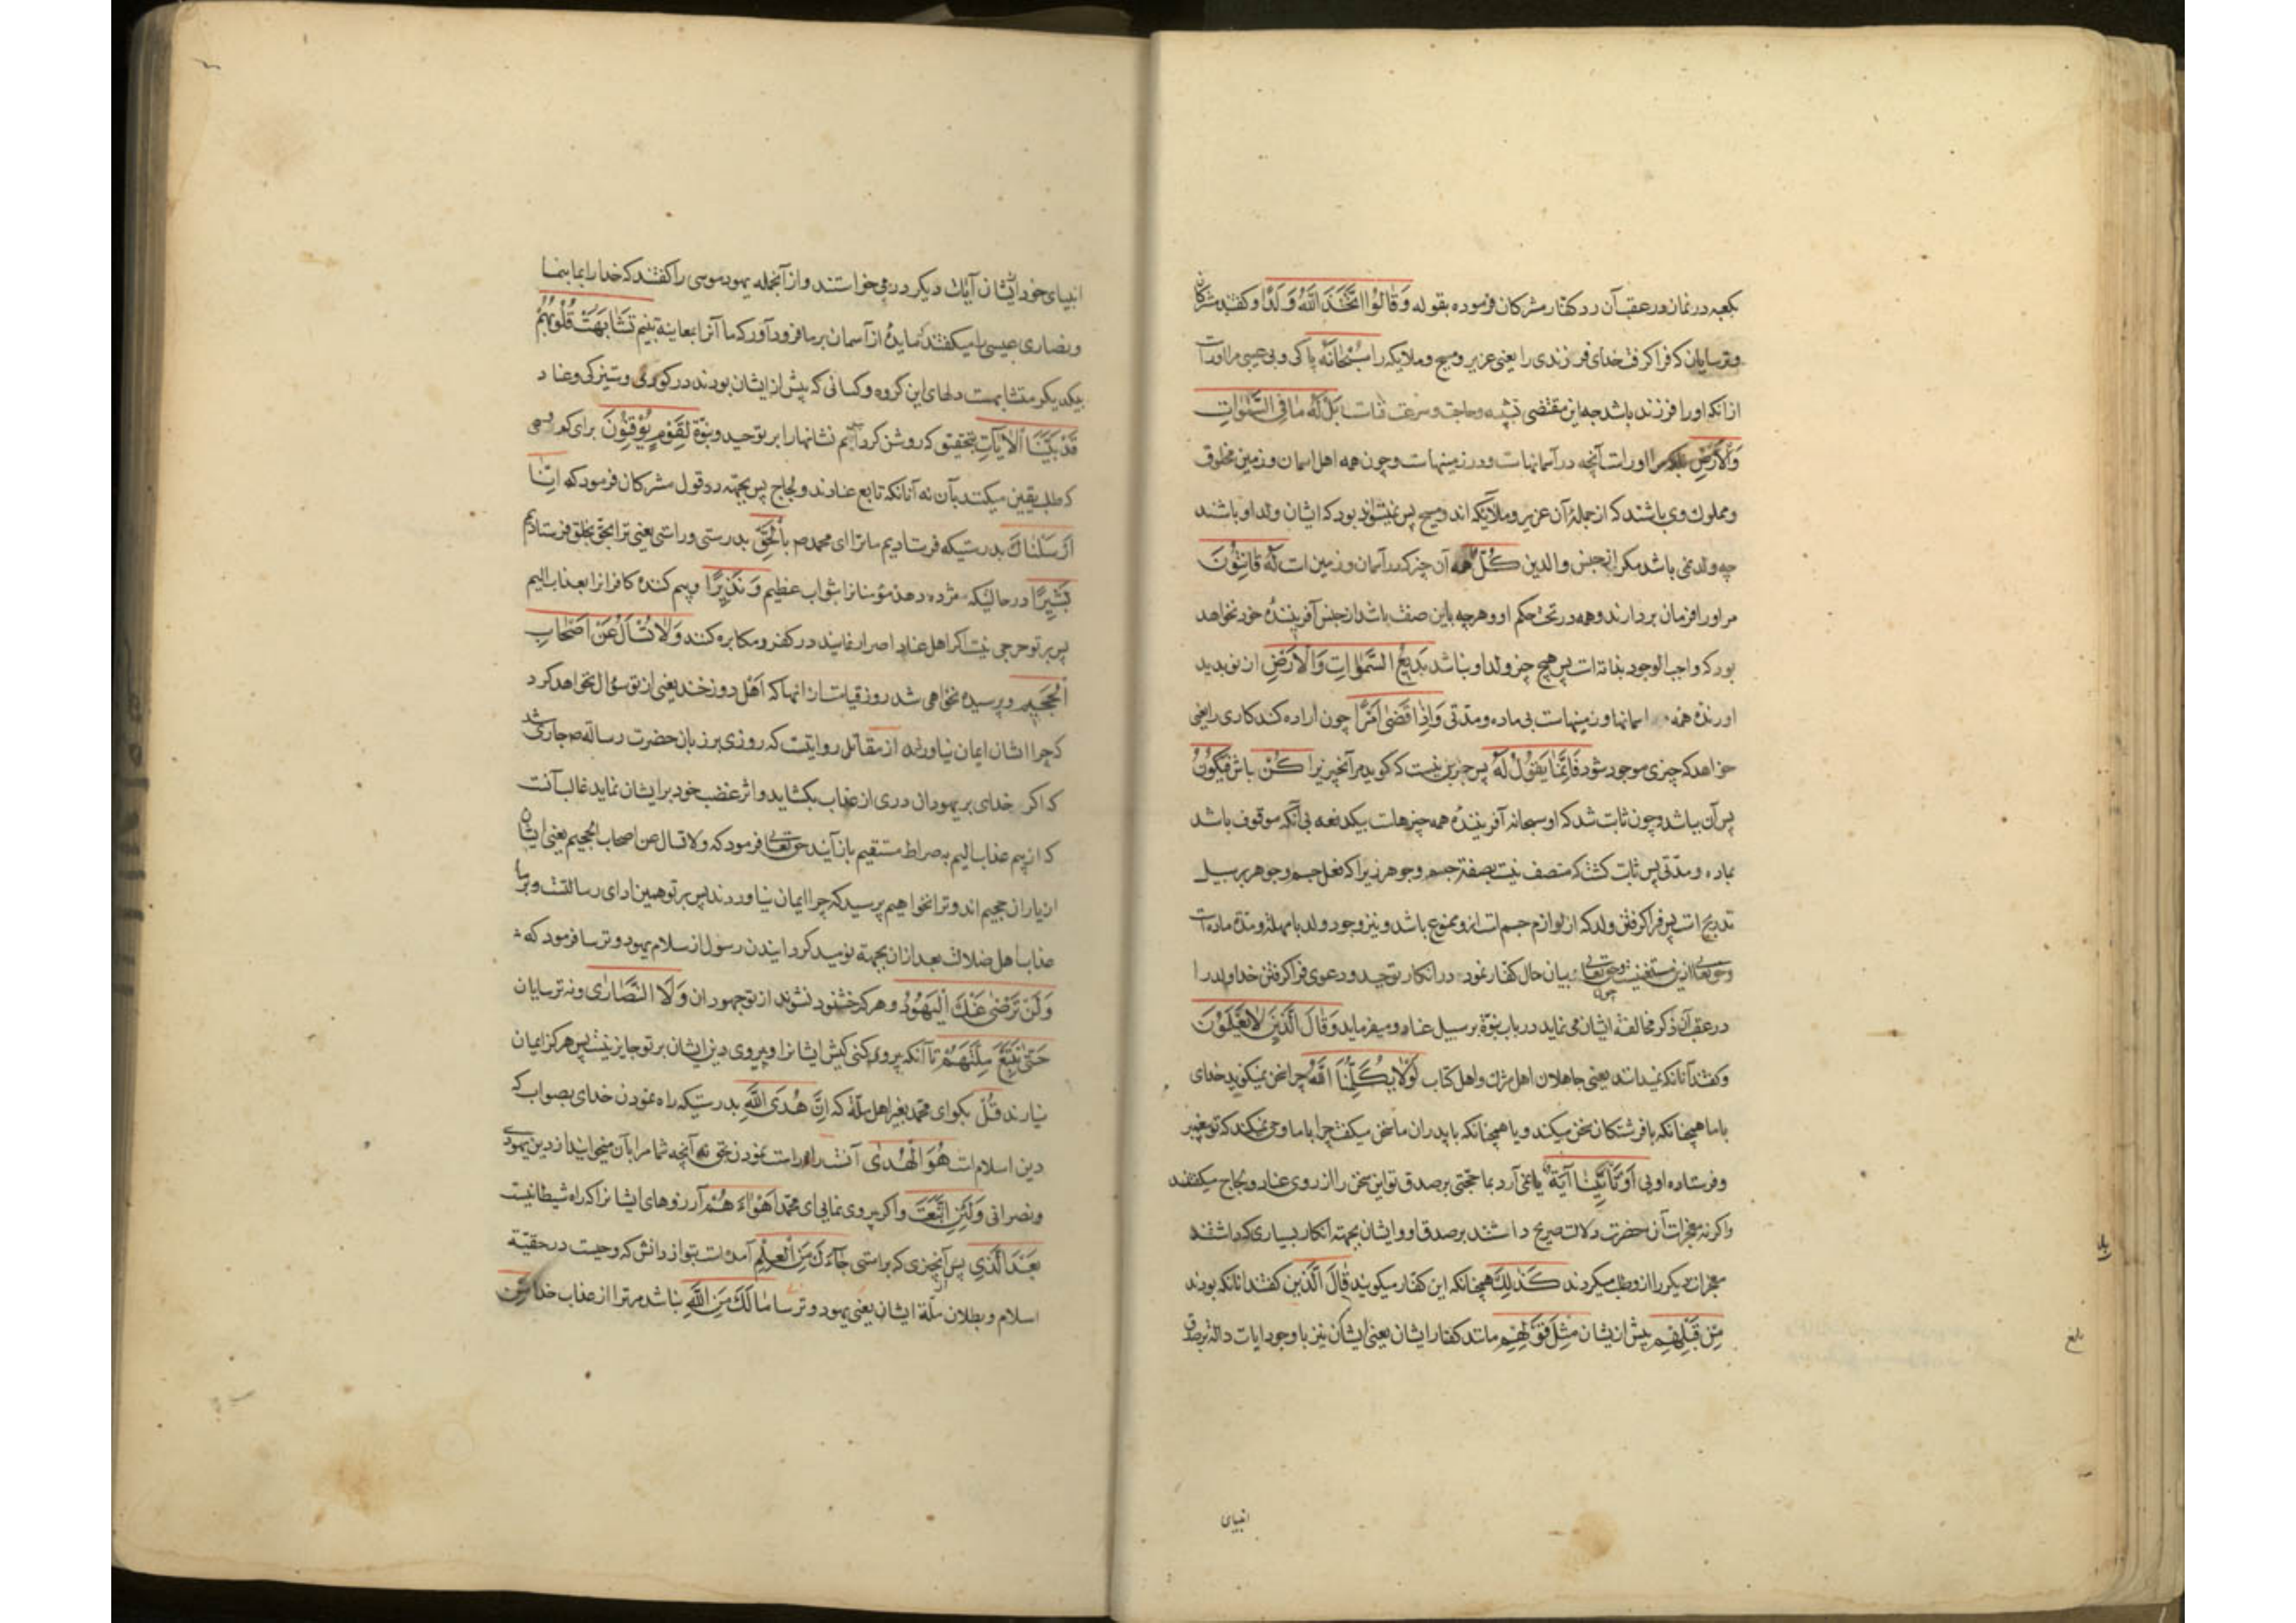 بکعبه در نماز و در عقب آن رد کفتار مشرکان فرموده بقوله وَقَالُوا اتَّخَذَ اللَّهُ وَلَدًا و کفتند مشرکان
و ترسایان که فرا کرفت خدای فرزندی را یعنی عزیر و مسیح و ملایکه را سُبْحَانَهُ پاکی و بی عیبی مر او راست
از انکه او را فرزند باشد چه این مقتضی تشبیه و حاجت و سرعت فناست بَلْ لَهُ مَا فِی السَّمٰوَاتِ
وَالْاَرْضِ اوراست آنچه در آسمانهاست و در زمینهاست و چون همه اهل اسمان و زمین مخلوق
و مملوک وی باشند که از جملهٔ آن عزیر و ملایکه اند و مسیح پس نمیتواند بود که ایشان ولد او باشند
چه ولد نمی باشد مکر از جنس والدین کُلٌّ همه آن چیز که در آسمان و زمین است لَهُ قَانِتُونَ
مر او را فرمان بردارند و همه در تحت حکم او و هر چه باین صفت باشد از جنس آفرینندهٔ خود نخواهد
بود که واجب الوجود بذاته است پس هیچ چیز ولد او نباشد بَدِیعُ السَّمٰوَاتِ وَالْاَرْضِ از نو پدید
اورندهٔ همه اسمانها و زمینهاست بی ماده و مدتی وَاِذَا قَضٰی اَمْرًا چون اراده کند کاری را یعنی
خواهد که چیزی موجود شود فَاِنَّمَا یَقُولُ لَهُ پس جز این نیست که کوید مر آنچیز را کُنْ باش فَیَکُونُ
پس آن بباشد و چون ثابت شد که او سبحانه آفرینندهٔ همه چیزهاست بیکدفعه بی آنکه موقوف باشد
بماده و مدتی پس ثابت کشت که متصف نیست بصفة جسم و جوهر زیرا که فعل جسم و جوهر بر سبیل
تدریج است پس فرا کرفتن ولد که از لوازم جسم است ازو ممنوع باشد و نیز وجود ولد بامهله و مدة ماده است
و حق تعالی ازین مستغنیست و چون حق تعالی بیان حال کفار نمود در انکار توحید و دعوی فرا کرفتن خدا ولد را
در عقب آن ذکر مخالفة ایشان می نماید در باب نبوة بر سبیل عناد و میفرماید وَقَالَ الَّذِینَ لَا یَعْلَمُونَ
و کفتند آنانکه نمیدانند یعنی جاهلان اهل شرک و اهل کتاب لَوْلَا یُکَلِّمُنَا اللَّهُ چرا سخن نمیکوید خدای
باما همچنانکه با فرشتکان سخن میکند و یا همچنانکه با پدران ما سخن میکفت چرا باما وحی نمیکند که تو پیغمبر
و فرستاده اویی اَوْ تَأْتِینَا آیَةٌ یا نمی آرد بما حجتی بر صدق تو این سخن را از روی عناد و لجاج میکفتند
و اکر نه معجزات آن حضرت دلالت صریح داشتند بر صدق او و ایشان بجهة انکار بسیاری که داشتند
معجزات دیکر را ازو طلب میکردند کَذٰلِکَ همچنانکه این کفار میکویند قَالَ الَّذِینَ کفتند انانکه بودند
مِنْ قَبْلِهِمْ پیش از یشان مِثْلَ قَوْلِهِمْ مانند کفتار ایشان یعنی ایشان نیز با وجود ایات داله بر صدق
انبیای
بلغ
انبیای خود ایشان آیات دیکر درمی خواستند و از آنجمله یهود موسی را کفتند که خدا را بما بنما
و نصاری عیسی را میکفتند که مایدهٔ از آسمان بر ما فرود آور که ما آنرا بمعاینه بینیم تَشَابَهَتْ قُلُوبُهُمْ
بیکدیکر متشابهست دلهای این کروه و کسانی که پیش از ایشان بودند در کوری و تیرکی و عناد
قَدْ بَیَّنَّا الْآیَاتِ بتحقیق که روشن کرده ایم نشانهارا بر توحید و نبوة لِقَوْمٍ یُوقِنُونَ برای کروهی
که طلب یقین میکنند بآن نه آنانکه تابع عنادند و لجاج پس بجهة رد قول مشرکان فرمود که اِنَّا
اَرْسَلْنَاکَ بدرستیکه فرستادیم ما ترا ای محمد ص بِالْحَقِّ بدرستی و راستی یعنی ترا بحق بخلق فرستادیم
بَشِیرًا در حالتیکه مژده دهندهٔ مؤمنانرا بثواب عظیم وَنَذِیرًا و بیم کنندهٔ کافرانرا بعذاب الیم
پس بر تو حرجی نیست اکر اهل عناد اصرار نمایند در کفر و مکابره کنند وَلَا تُسْأَلُ عَنْ اَصْحَابِ
الْجَحِیمِ و پرسیده نخواهی شد روز قیامت از انها که اهل دوزخند یعنی از تو سؤال نخواهد کرد
که چرا ایشان ایمان نیاوردند از مقاتل روایتست که روزی بر زبان حضرت رسالة ص جاری شد
که اکر خدای بر یهودان دری از عذاب بکشاید و اثر غضب خود بر ایشان نماید غالب آنست
که از بیم عذاب الیم بصراط مستقیم باز آیند حق تعالی فرمود که ولا تسال عن اصحاب الجحیم یعنی ایشان
از یاران جحیم اند و ترا نخواهیم پرسید که چرا ایمان نیاوردند پس بر تو همین ادای رسالتست و بر ما
عذاب اهل ضلالت بعد ازان بجهة نومید کردانیدن رسول از سلام یهود و ترسا فرمود که
وَلَنْ تَرْضٰی عَنْکَ الْیَهُودُ و هر کز خشنود نشوند از تو جهودان وَلَا النَّصَارٰی و نه ترسایان
حَتّٰی تَتَّبِعَ مِلَّتَهُمْ تا آنکه پیروی کنی کیش ایشانرا و پیروی دین ایشان بر تو جایز نیست پس هرکز ایمان
نیارند قُلْ بکو ای محمد بغیر اهل ملة که اِنَّ هُدَی اللَّهِ بدرستیکه راه نمودن خدای بصواب که
دین اسلام است هُوَ الْهُدٰی آنست راه راست نمودن بحق نه آنچه شما مرا بآن میخوانید از دین یهودی
و نصرانی وَلَئِنِ اتَّبَعْتَ و اکر پیروی نمایی ای محمد اَهْوَاءَهُمْ آرزوهای ایشانرا که راه شیطانیست
بَعْدَ الَّذِی پس آنچیزی که براستی جَاءَکَ مِنَ الْعِلْمِ آمده است بتو از دانش که وحیست در حقیة
اسلام و بطلان ملة ایشان یعنی یهود و ترسا مَا لَکَ مِنَ اللَّهِ نباشد مر ترا از عذاب خدا مِنْ